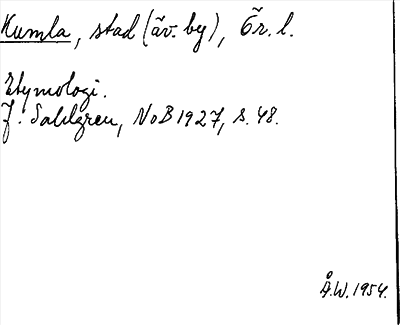 Kumla, stad (äv. by), Ör. l.
Etymologi.
J. Sahlgren, NoB 1927, s. 48.
Å.W. 1954.